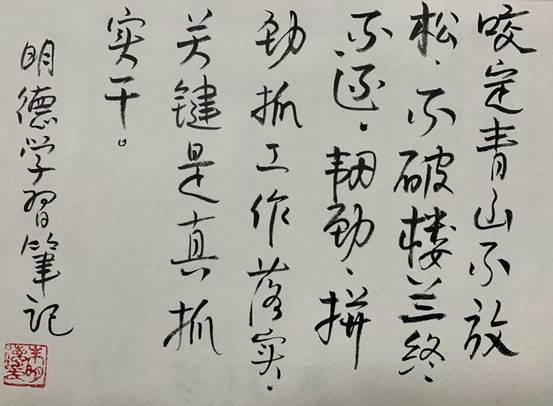 咬定青山不放
松、不破楼兰终
不还、韧劲、拼
劲抓工作落实、
关键是真抓
实干。
明德学習筆记